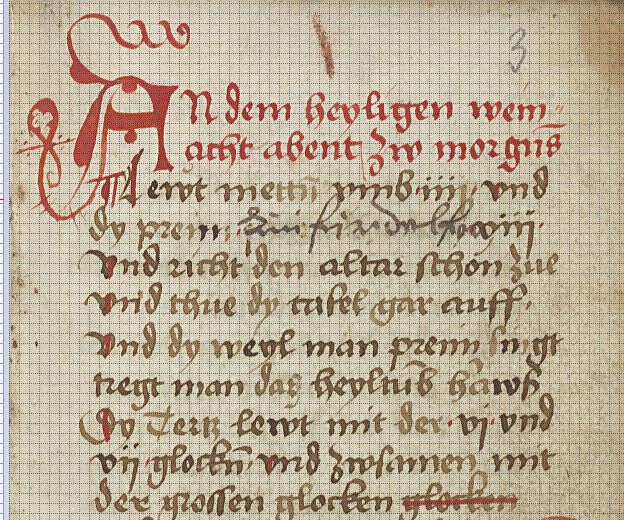 3
AN dem heyligen wein-
acht abent zw morgns
lewt mettn vmb iiij vnd
dy prem xiiij.
Vnd richt den altar schon zue
Vnd thue dy tafel gar auff.
Vnd dy weyl man prem singt
tregt man das heyltub hawß
Dy Tertz lewt mit der vj vnd
vij glockn vnd zwsamen mit
der grossen glocken glocken